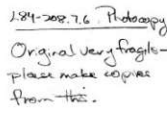 L84-208.7.6. Photocopy
Original very fragile -
please make copies
from this.